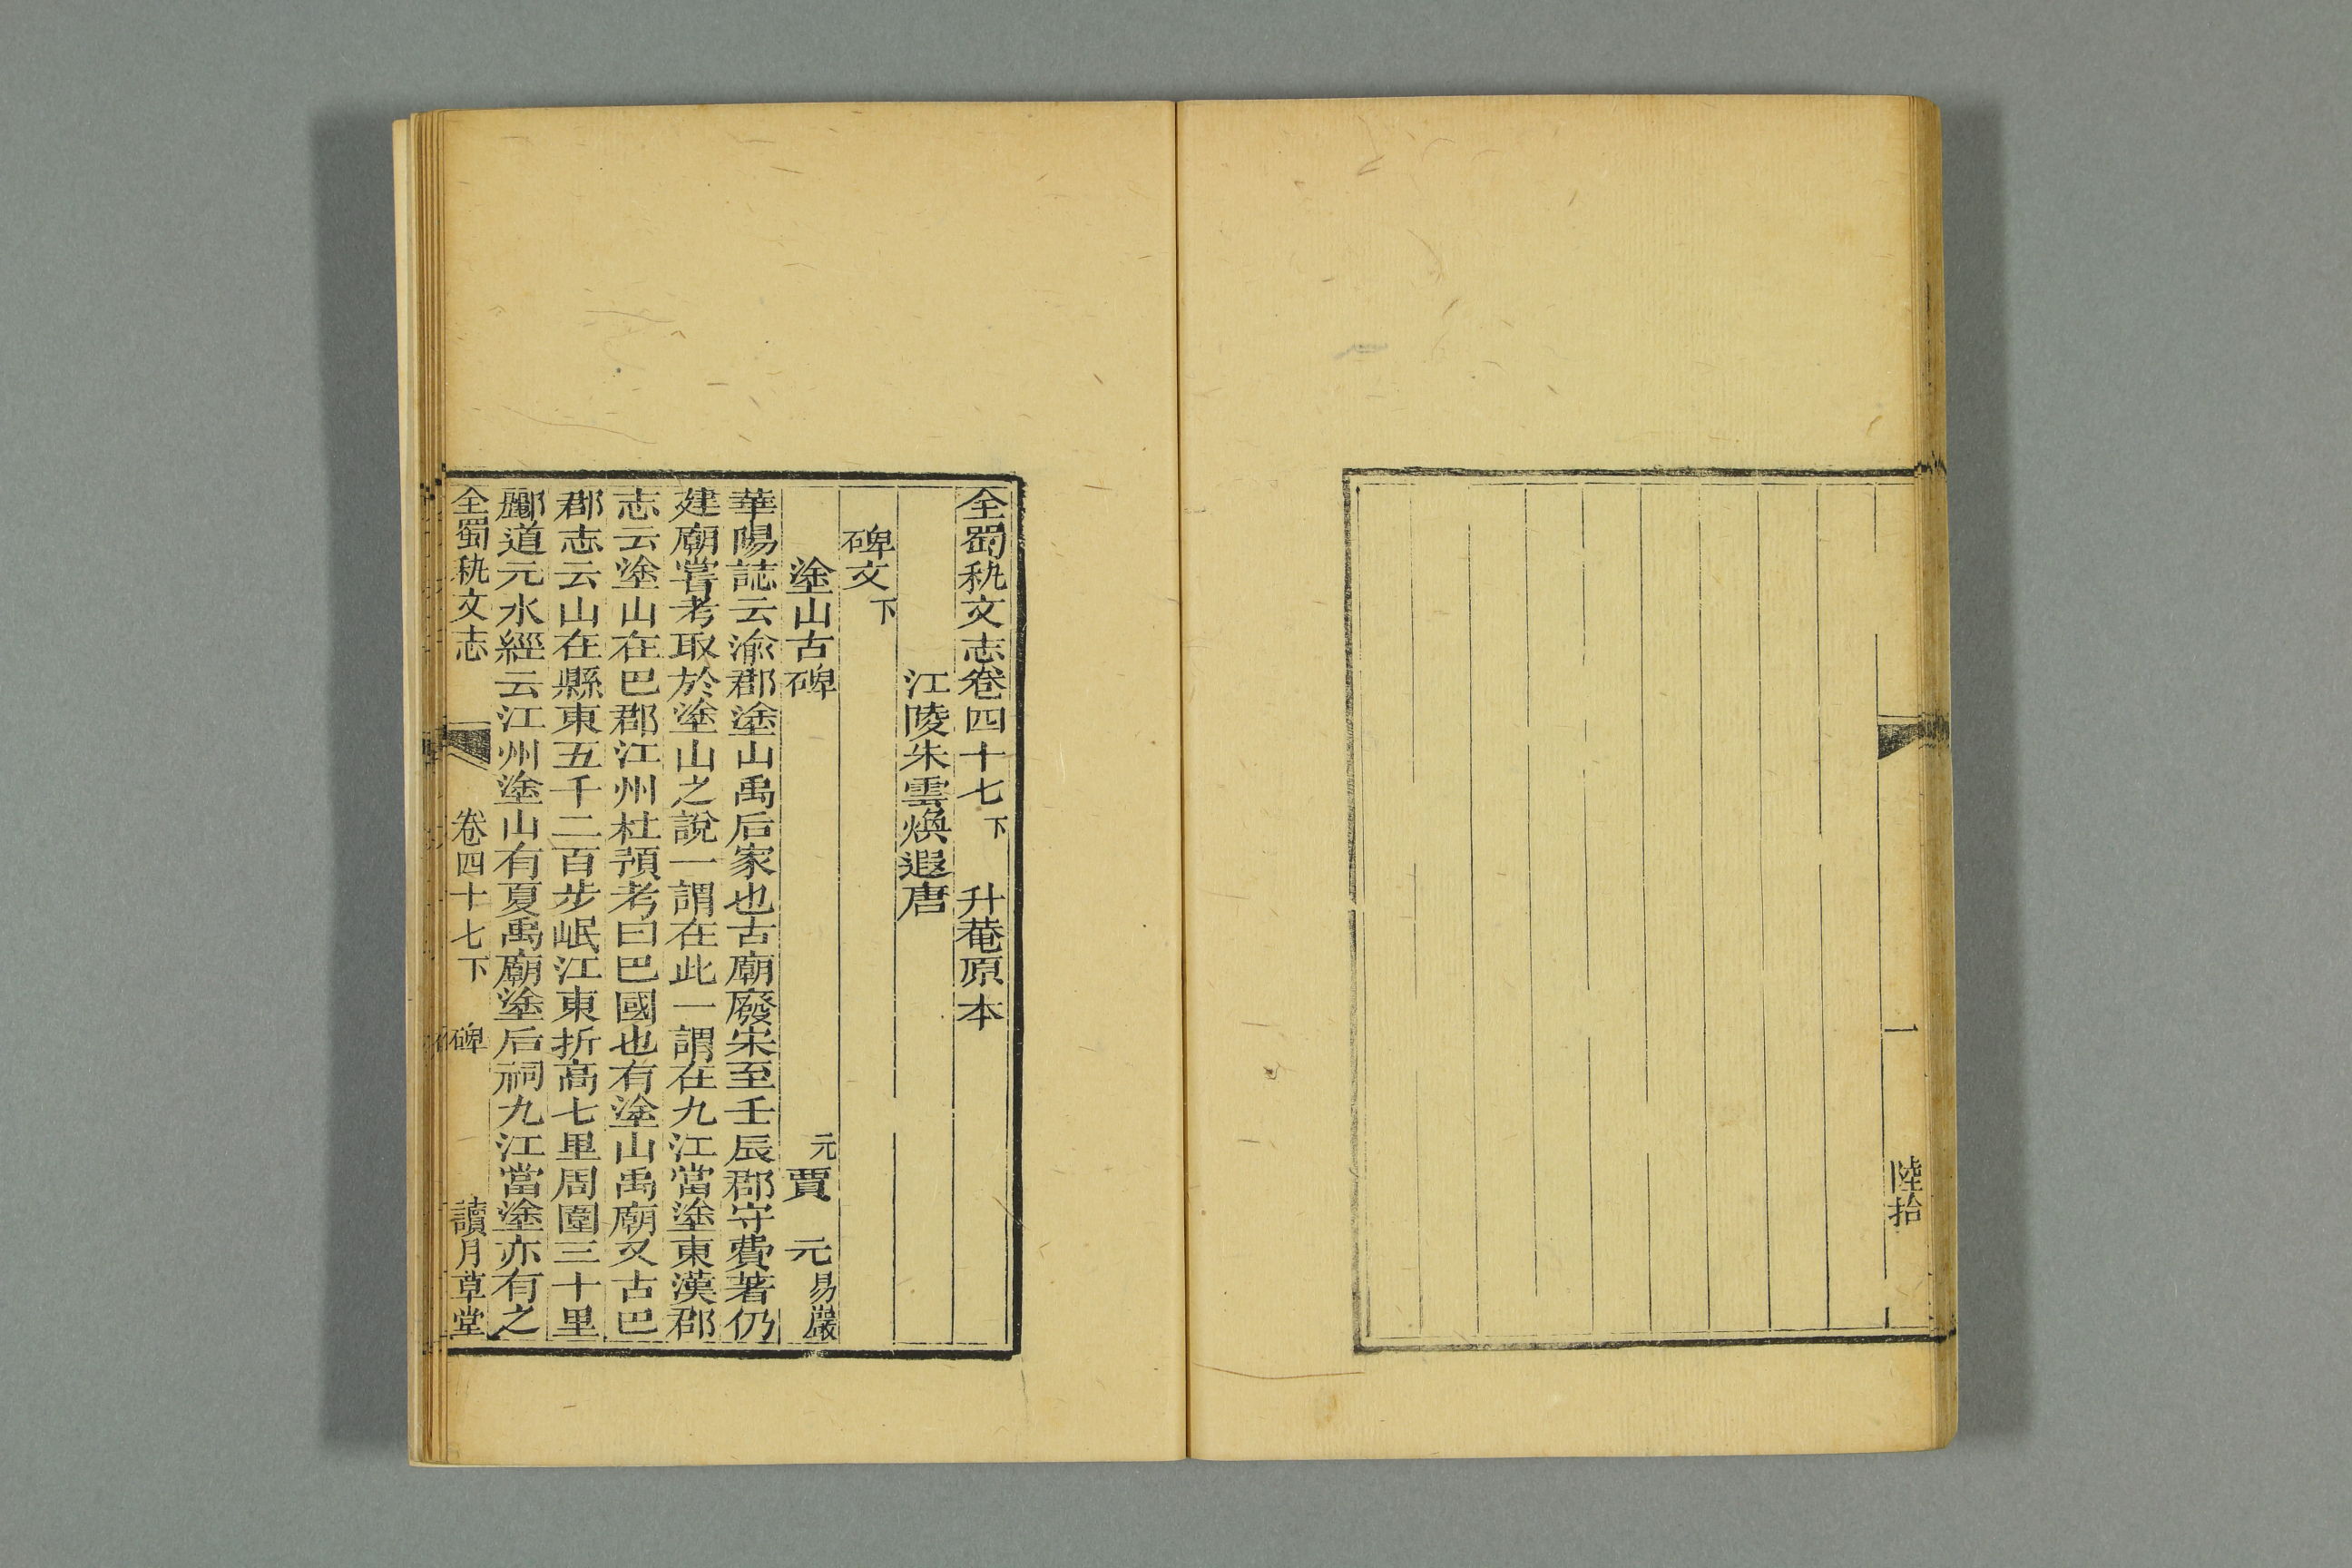 一 陸拾
全蜀秇文志卷四十七下 升菴原本
江陵朱雲煥遐唐
碑文下
塗山古碑 元賈元易巖
華陽誌云渝郡塗山禹后家也古廟廢宋至壬辰郡守費著仍
建廟嘗考取於塗山之說一謂在此一謂在九江當塗東漢郡
志云塗山在巴郡江州杜預考曰巴國也有塗山禹廟又古巴
郡志云山在縣東五千二百步岷江東折高七里周圍三十里
酈道元水經云江州塗山有夏禹廟塗后祠九江當塗亦有之
全蜀秇文志 卷四十七下 碑 讀月草堂